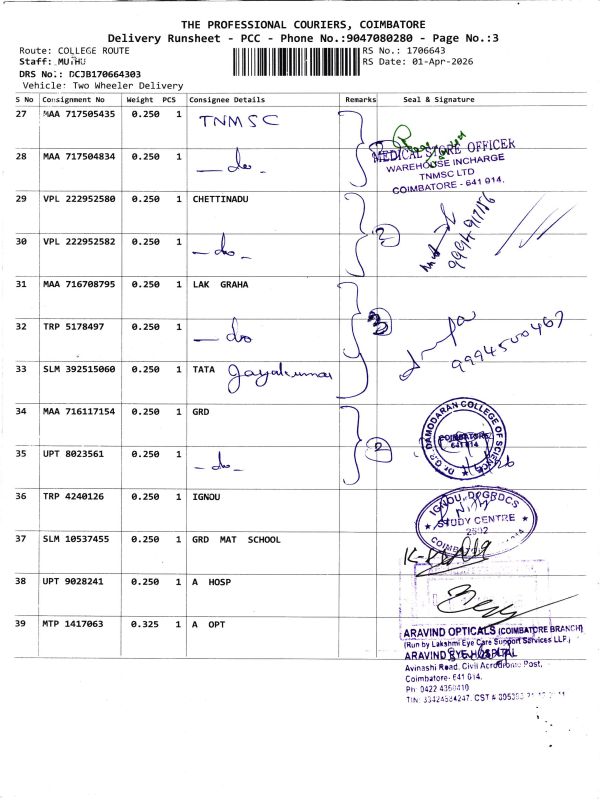 THE PROFESSIONAL COURIERS, COIMBATORE
Delivery Runsheet - PCC - Phone No.:9047080280 - Page No.:3
Route: COLLEGE ROUTE RS No.: 1706643
Staff: MUTHU RS Date: 01-Apr-2026
DRS No.: DCJB170664303
Vehicle: Two Wheeler Delivery
S No Consignment No Weight PCS Consignee Details Remarks Seal & Signature
27 MAA 717505435 0.250 1 TNMSC
28 MAA 717504834 0.250 1 — do —
MEDICAL STORE OFFICER
WAREHOUSE INCHARGE
TNMSC LTD
COIMBATORE - 641 014.
29 VPL 222952580 0.250 1 CHETTINADU
30 VPL 222952582 0.250 1 — do — 2
31 MAA 716708795 0.250 1 LAK GRAHA
32 TRP 5178497 0.250 1 — do 3
9994500467
33 SLM 392515060 0.250 1 TATA Jayakumar
34 MAA 716117154 0.250 1 GRD
35 UPT 8023561 0.250 1 — do — 2
DAMODARAN COLLEGE OF SCIENCE
COIMBATORE
641 014
36 TRP 4240126 0.250 1 IGNOU
IGNOU
STUDY CENTRE
37 SLM 10537455 0.250 1 GRD MAT SCHOOL
38 UPT 9028241 0.250 1 A HOSP
39 MTP 1417063 0.325 1 A OPT
ARAVIND OPTICALS (COIMBATORE BRANCH)
(Run by Lakshmi Eye Care Support Services LLP.)
ARAVIND EYE HOSPITAL
Avinashi Road, Civil Aerodrome Post,
Coimbatore- 641 014.
Ph: 0422 4360410